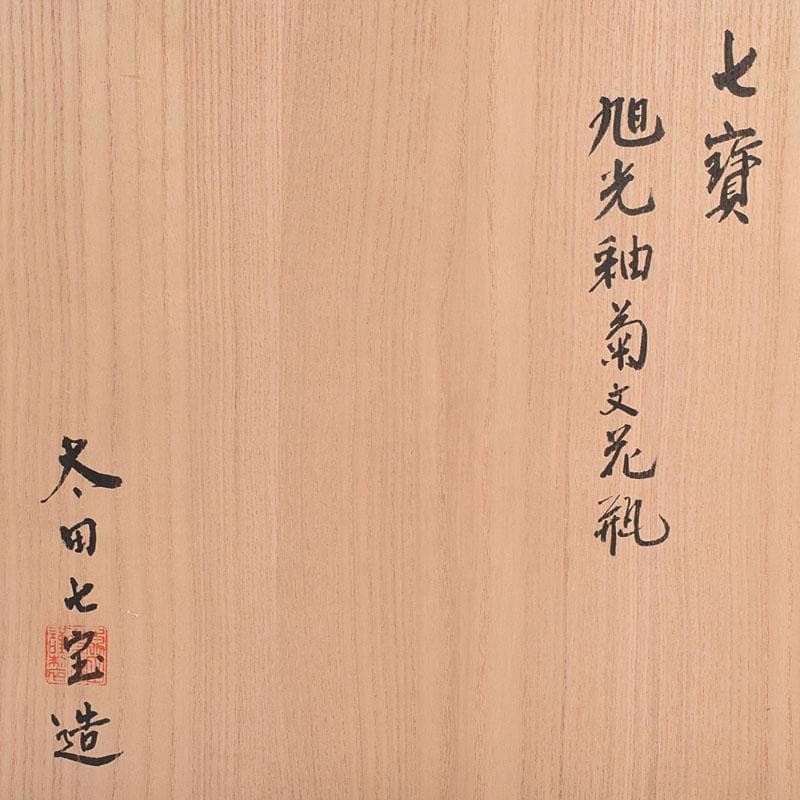 七寶
旭光釉菊文花瓶
太田七宝造